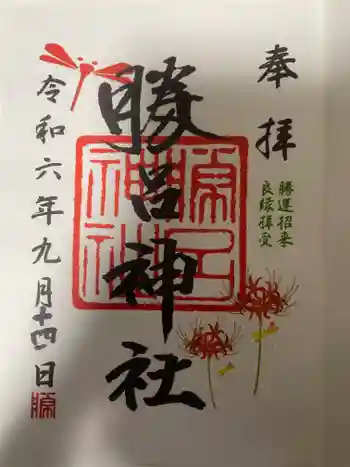 奉拝
勝運招来
良縁拝受
勝呂神社
令和六年九月十四日
勝呂神社
勝